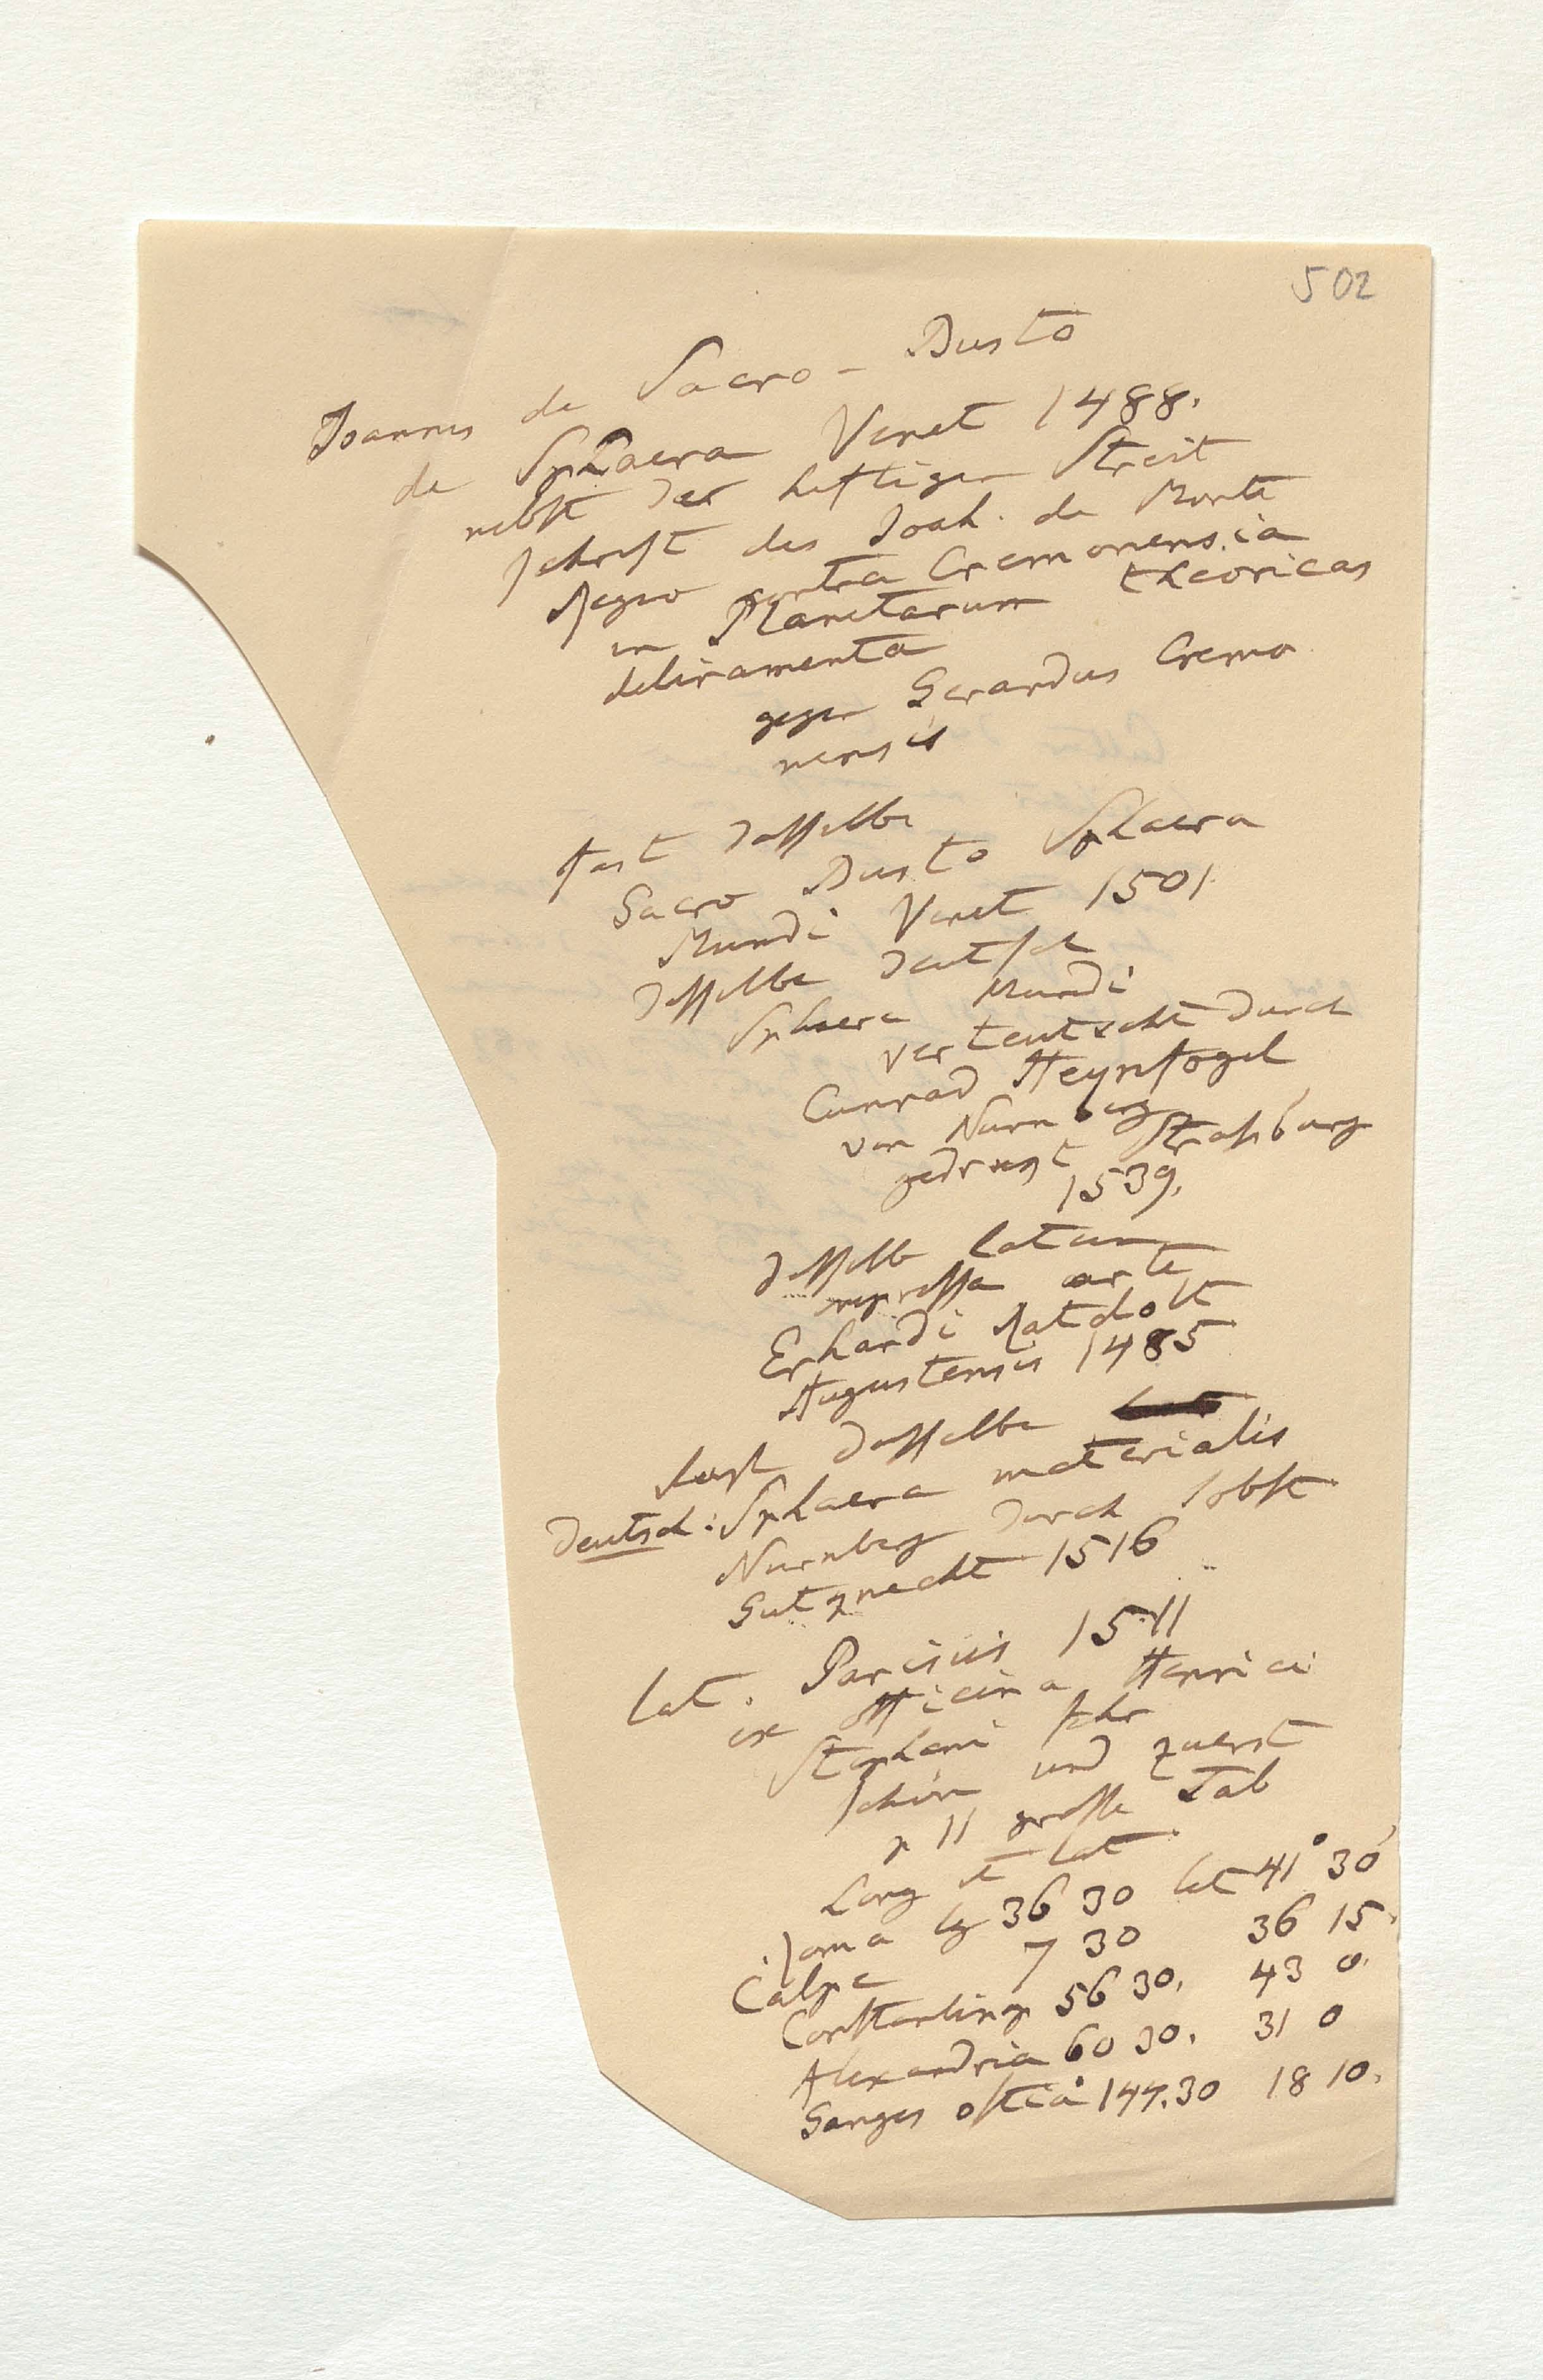 502
Joannes de Sacro-Busto
de Sphaera Venet 1488.
nebst der heftigen Streit
schrift des Joah. de Monte
Regio contra Cremonensia
in Planetarum theoricas
deliramenta
gegen Gerardus Cremo
nensis
fast dasselbe
Sacro Busto Sphaera
Mundi Venet 1501
dasselbe deutsch
Sphaera Mundi
verteutscht durch
Cunrad Heynfogel
von Nurnberg
gedruckt Strasburg
1539.
dasselbe latein
impressa arte
Erhardi Ratdolt
Augustensis 1485
fast dasselbe
deutsch: Sphaera materialis
Nurnberg durch Jobst
Gutknecht 1516
lat. Parisiis 1511
ex officina Henrici
Stephani sehr
schön und zuerst
p 11 grosse Tab
Long et lat
Roma lg 36 30 lat 41° 30'
Calpe 7 30 36 15.
Constantinop 56 30. 43 0.
Alexandria 60 30. 31 0
Ganges ostia 147.30 18 10.